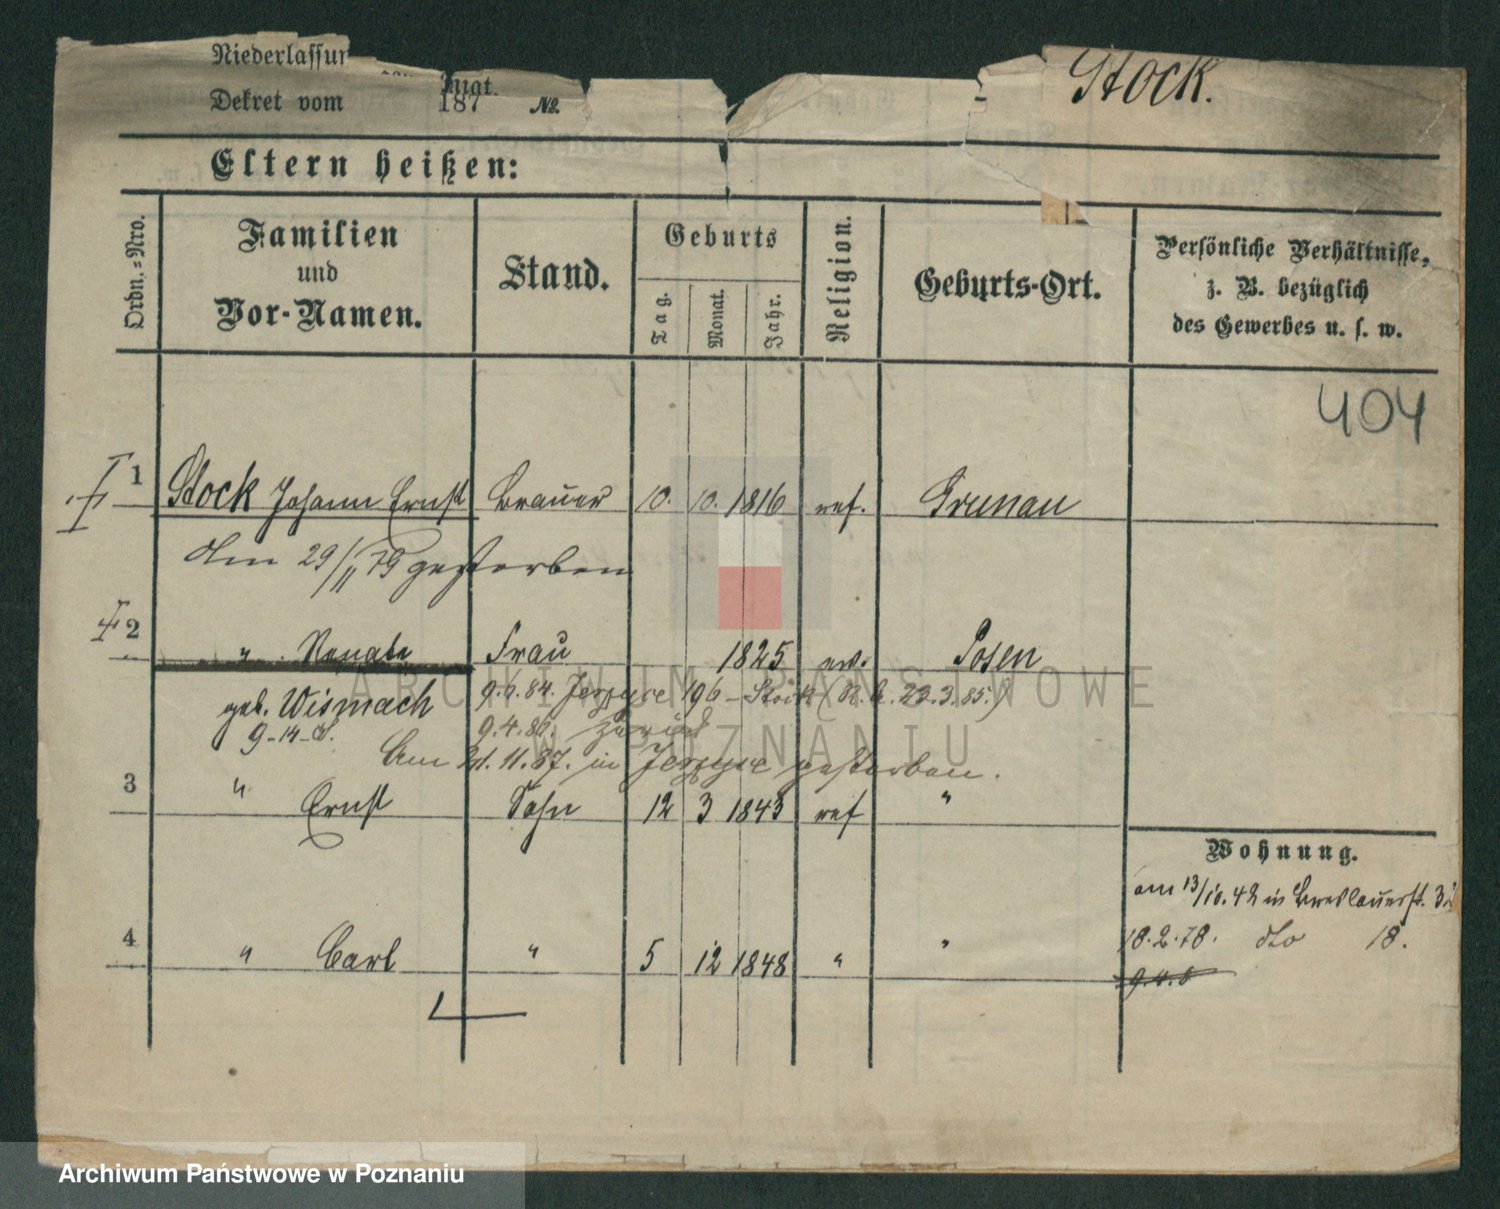 Niederlassun
Dekret vom 187 No.
Stock.
Eltern heißen:
Ordn.-Nro.
Familien
und
Vor-Namen.
Stand.
Geburts
Tag.
Monat.
Jahr.
Religion.
Geburts-Ort.
Persönliche Verhältnisse,
z. B. bezüglich
des Gewerbes u. s. w.
404
1 Stock Johann Ernst Brauer 10. 10. 1816 ref. Grunau
den 29/11 79 gestorben
2 " Renate Frau 1825 ev. Posen
geb. Wismach 9.6.84. Jerzyce 196 - Stock (N. b. 23.3.85.)
9-14-d. 9.4.86. zurück
Am 21.11.87. in Jerzyce gestorben.
3 " Ernst Sohn 12 3 1843 ref "
Wohnung.
am 13/10.42 in Breslauerst.
18.2.78. dto 18.
4 " Carl " 5 12 1848 " "
ARCHIWUM PAŃSTWOWE
W POZNANIU
Archiwum Państwowe w Poznaniu